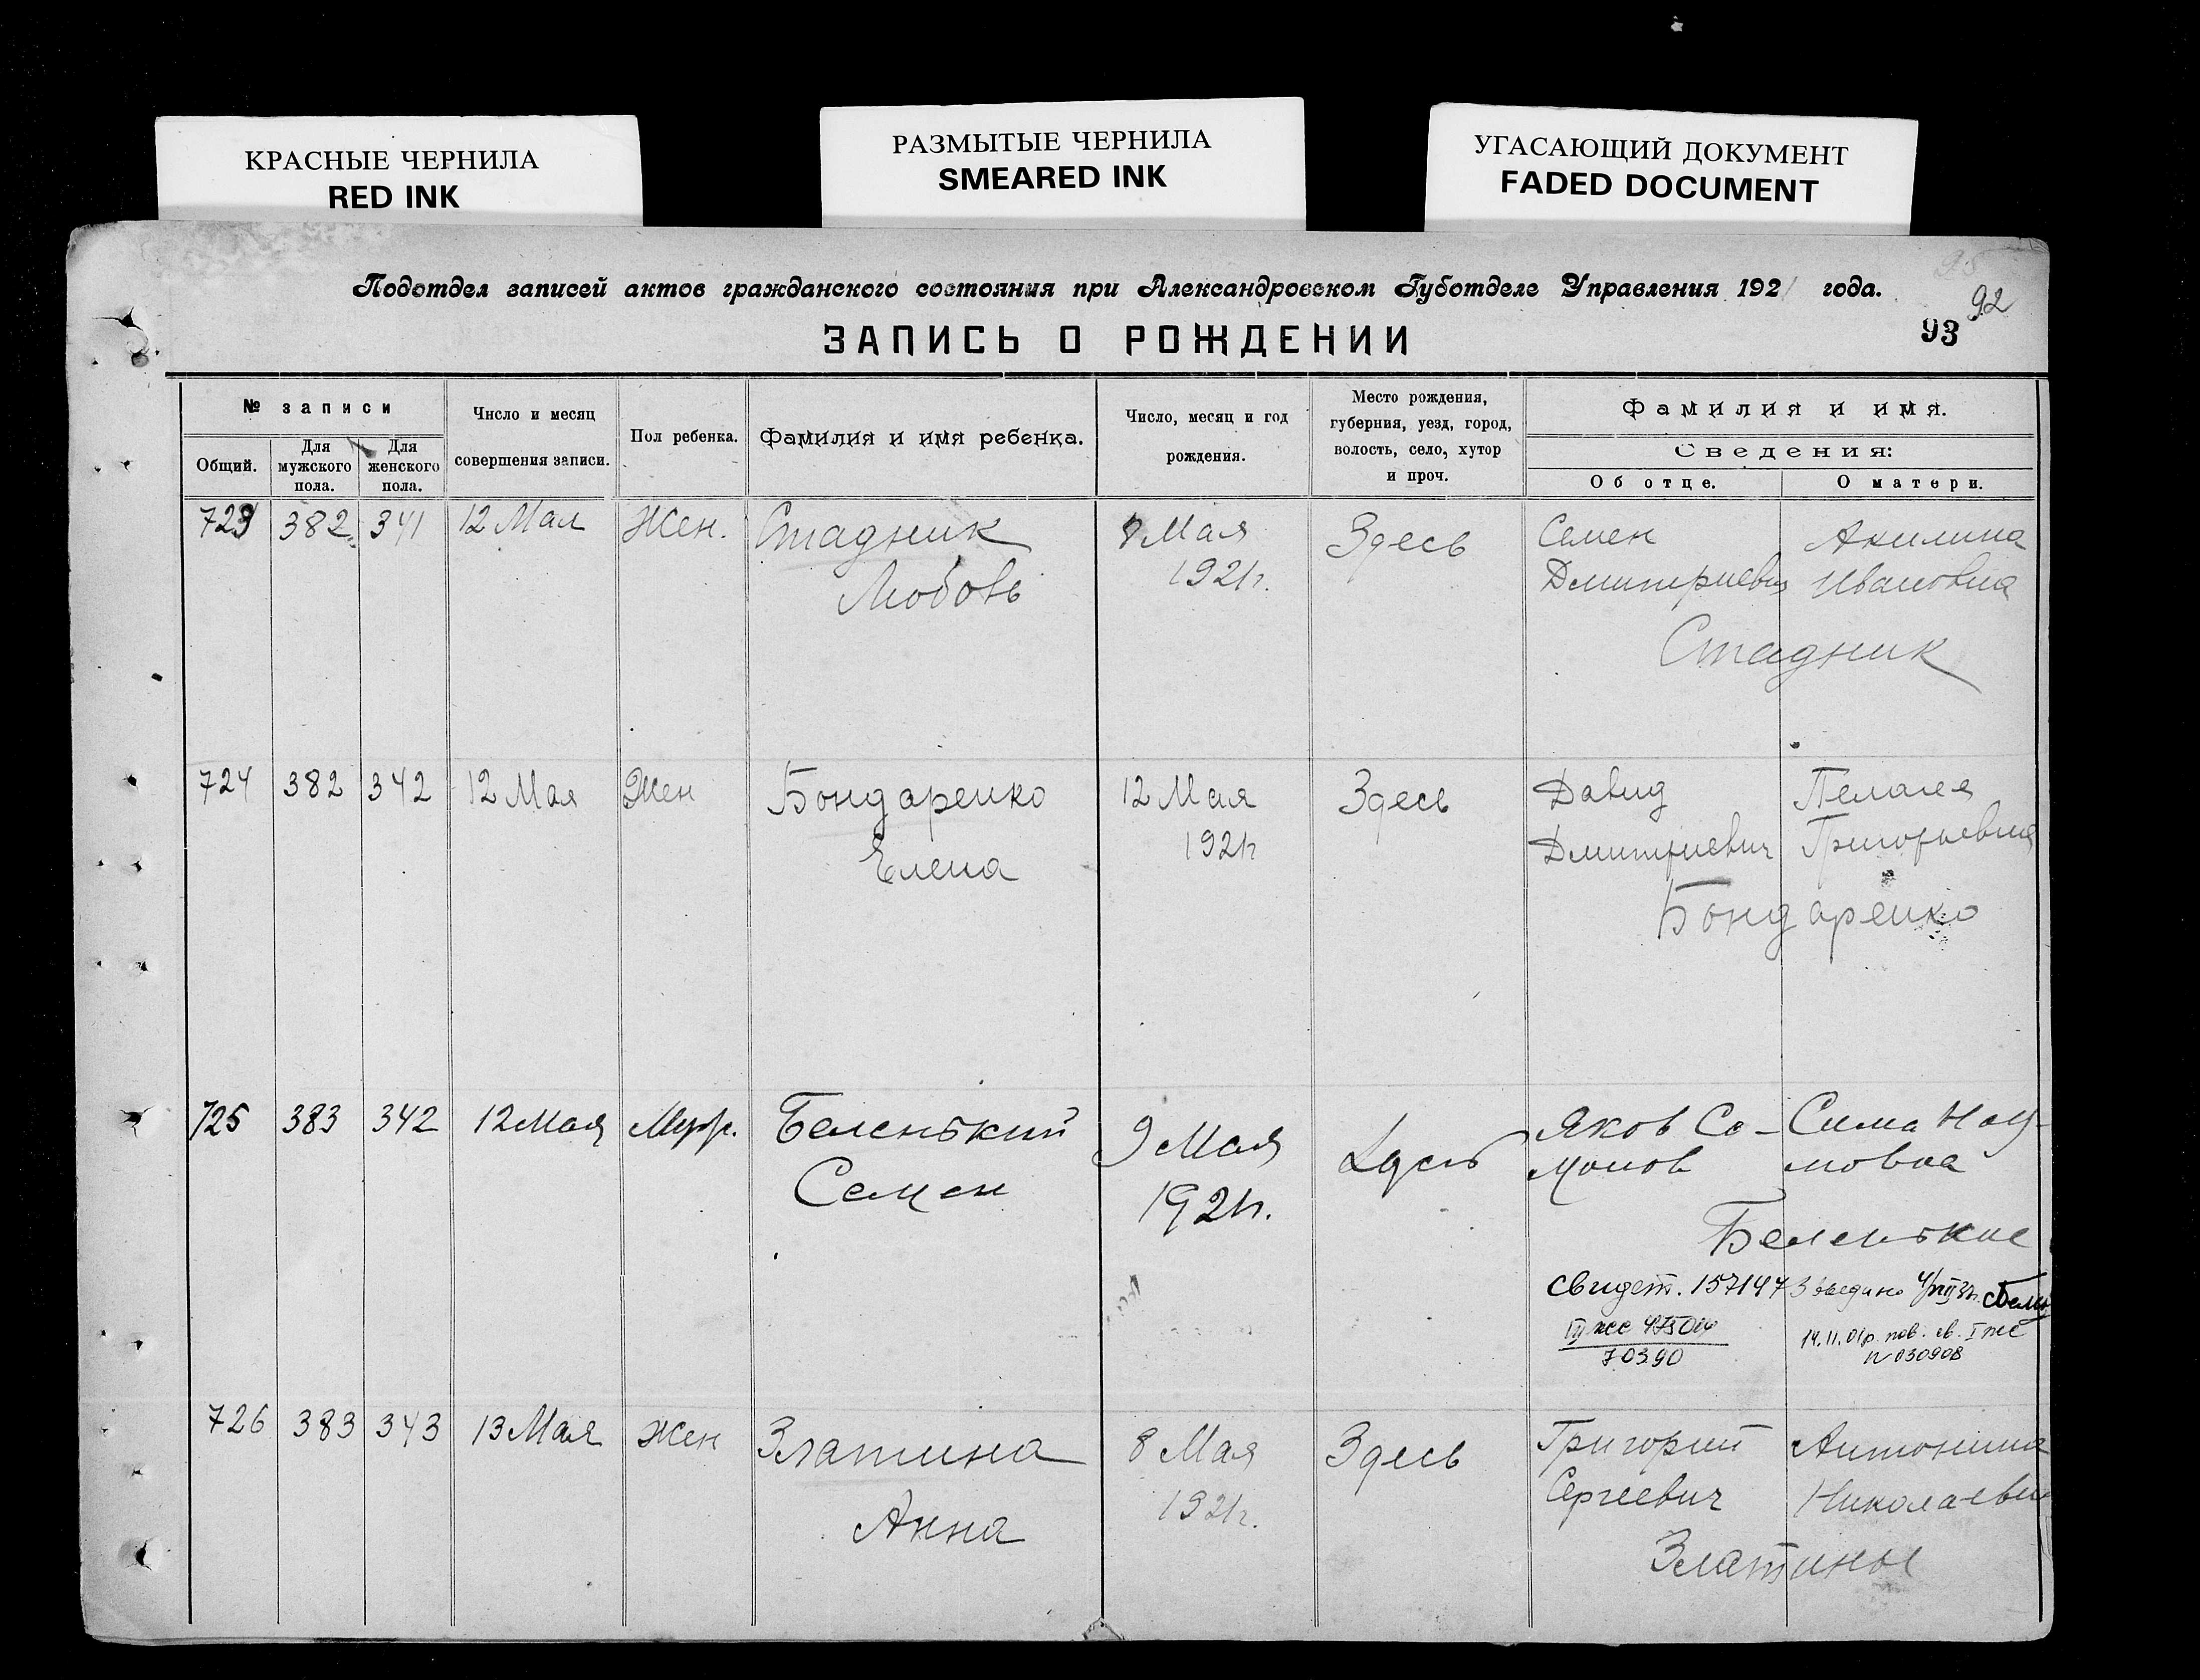 КРАСНЫЕ ЧЕРНИЛА
RED INK
РАЗМЫТЫЕ ЧЕРНИЛА
SMEARED INK
УГАСАЮЩИЙ ДОКУМЕНТ
FADED DOCUMENT
Подотдел записей актов гражданского состояния при Александровском Губотделе Управления 1921 года.
92
ЗАПИСЬ О РОЖДЕНИИ
93
№ записи
Общий.
Для мужского пола.
Для женского пола.
Число и месяц совершения записи.
Пол ребенка.
Фамилия и имя ребенка.
Число, месяц и год рождения.
Место рождения, губерния, уезд, город, волость, село, хутор и проч.
Фамилия и имя.
Сведения:
Об отце.
О матери.
723 382 341 12 Мая Жен. Стадник 8 Мая Здесь Семен Акилина
Любовь 1921г. Дмитриевич Ивановна
Стадник
724 382 342 12 Мая Жен Бондаренко 12 Мая Здесь Давид Пелагея
Елена 1921г Дмитриевич Григорьевна
Бондаренко
725 383 342 12 Мая Муж. Беленький 9 Мая Здесь Яков Со- Сима Нау-
Семен 1921г. монов мовна
Беленькие
Свидет. 157147
14.11.01р. пов. св. І
70390 N 030908
726 383 343 13 Мая Жен Златина 8 Мая Здесь Григорий Антонина
Анна 1921г. Сергеевич Николаевн
Златины